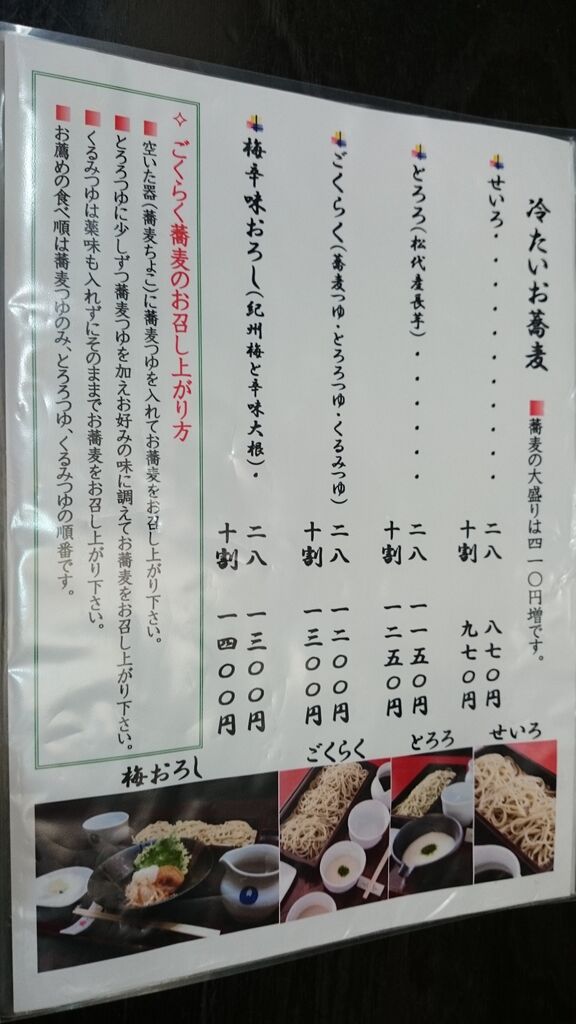 冷たいお蕎麦
■蕎麦の大盛りは四一〇円増です。
せいろ・・・・・・・・・・
二八 八七〇円
十割 九七〇円
とろろ(松代産長芋)・・・・・・
二八 一一五〇円
十割 一二五〇円
ごくらく(蕎麦つゆ・とろろつゆ・くるみつゆ)
二八 一二〇〇円
十割 一三〇〇円
梅辛味おろし(紀州梅と辛味大根)・
二八 一三〇〇円
十割 一四〇〇円
✧ごくらく蕎麦のお召し上がり方
■空いた器(蕎麦ちょこ)に蕎麦つゆを入れてお蕎麦をお召し上がり下さい。
■とろろつゆに少しずつ蕎麦つゆを加えお好みの味に調えてお蕎麦をお召し上がり下さい。
■くるみつゆは薬味も入れずにそのままでお蕎麦をお召し上がり下さい。
■お薦めの食べ順は蕎麦つゆのみ、とろろつゆ、くるみつゆの順番です。
せいろ
とろろ
ごくらく
梅おろし